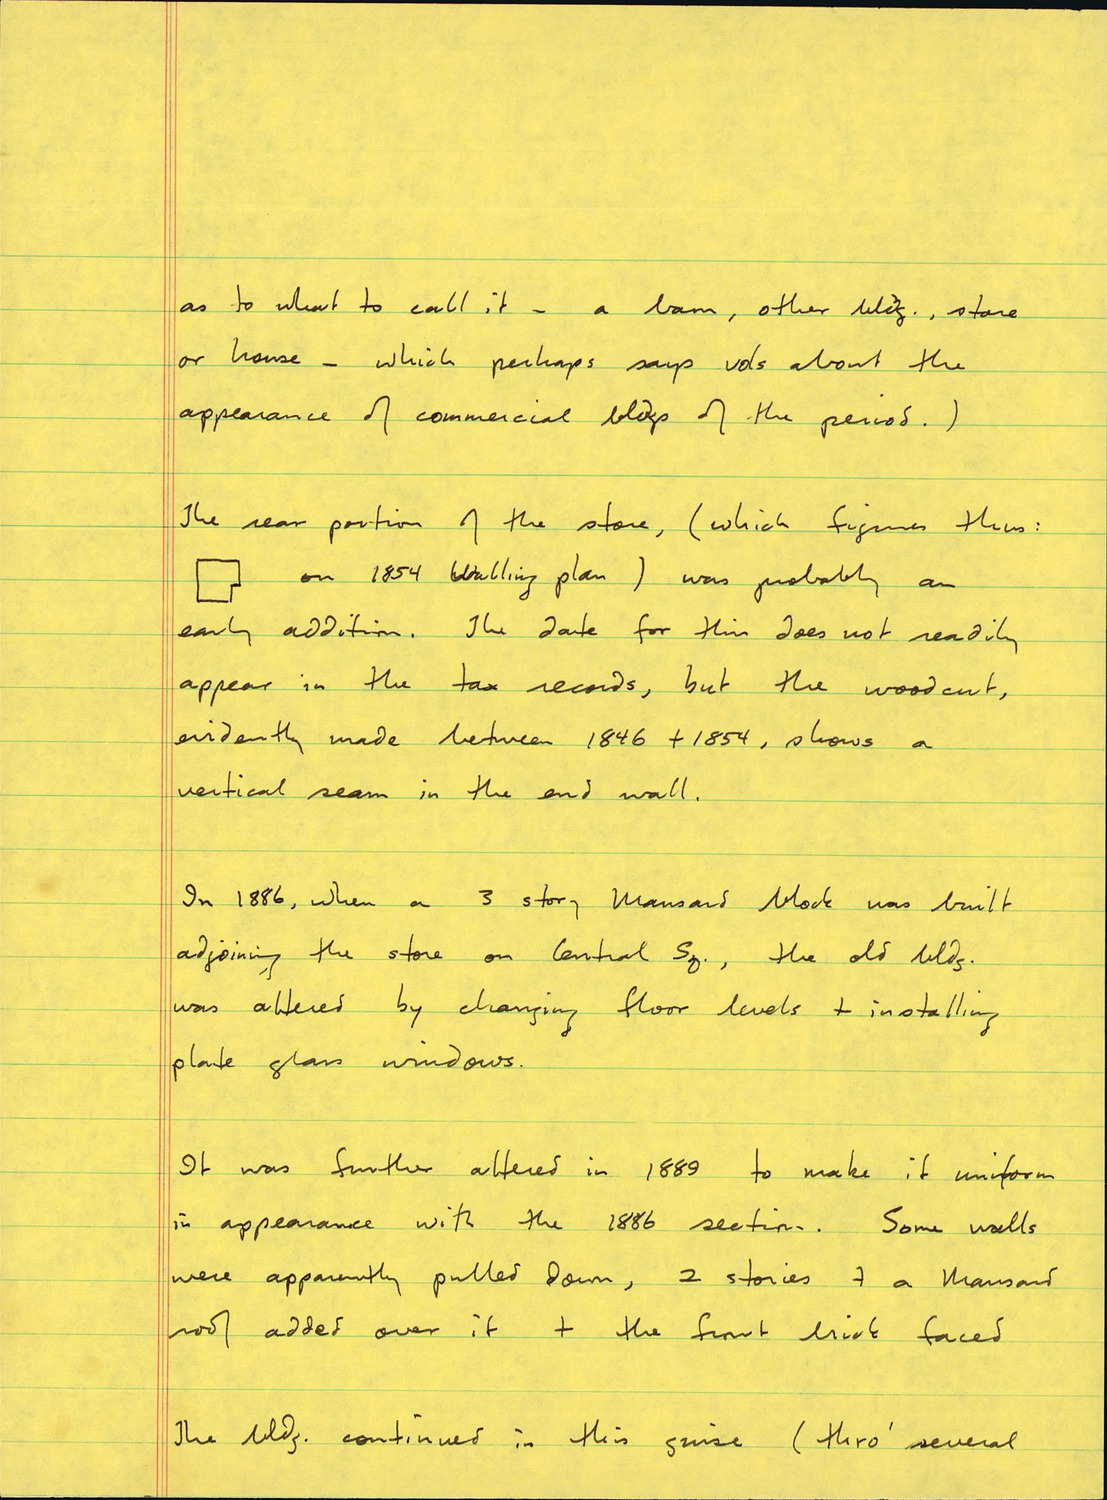 as to what to call it - a barn, other bldg., store
or house - which perhaps says vols about the
appearance of commercial bldgs of the period.)
The rear portion of the store, (which figures thus:
on 1854 Walling plan) was probably an
early addition. The date for this does not readily
appear in the tax records, but the woodcut,
evidently made between 1846 + 1854, shows a
vertical seam in the end wall.
In 1886, when a 3 story Mansard block was built
adjoining the store on Central Sq., the old bldg.
was altered by changing floor levels + installing
plate glass windows.
It was further altered in 1889 to make it uniform
in appearance with the 1886 section. Some walls
were apparently pulled down, 2 stories + a Mansard
roof added over it + the front brick faced
The bldg. continued in this guise (thro' several